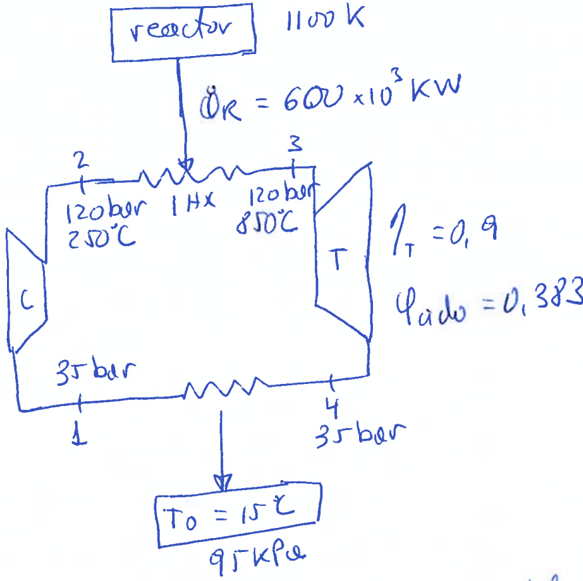 reactor 1100 K
Q̇R = 600 × 10³ KW
2 3
120 bar IHX 120 bar
250°C 850°C
C T ηT = 0,9
φado = 0,383
35 bar
1 4
35 bar
T0 = 15°C
95 KPa